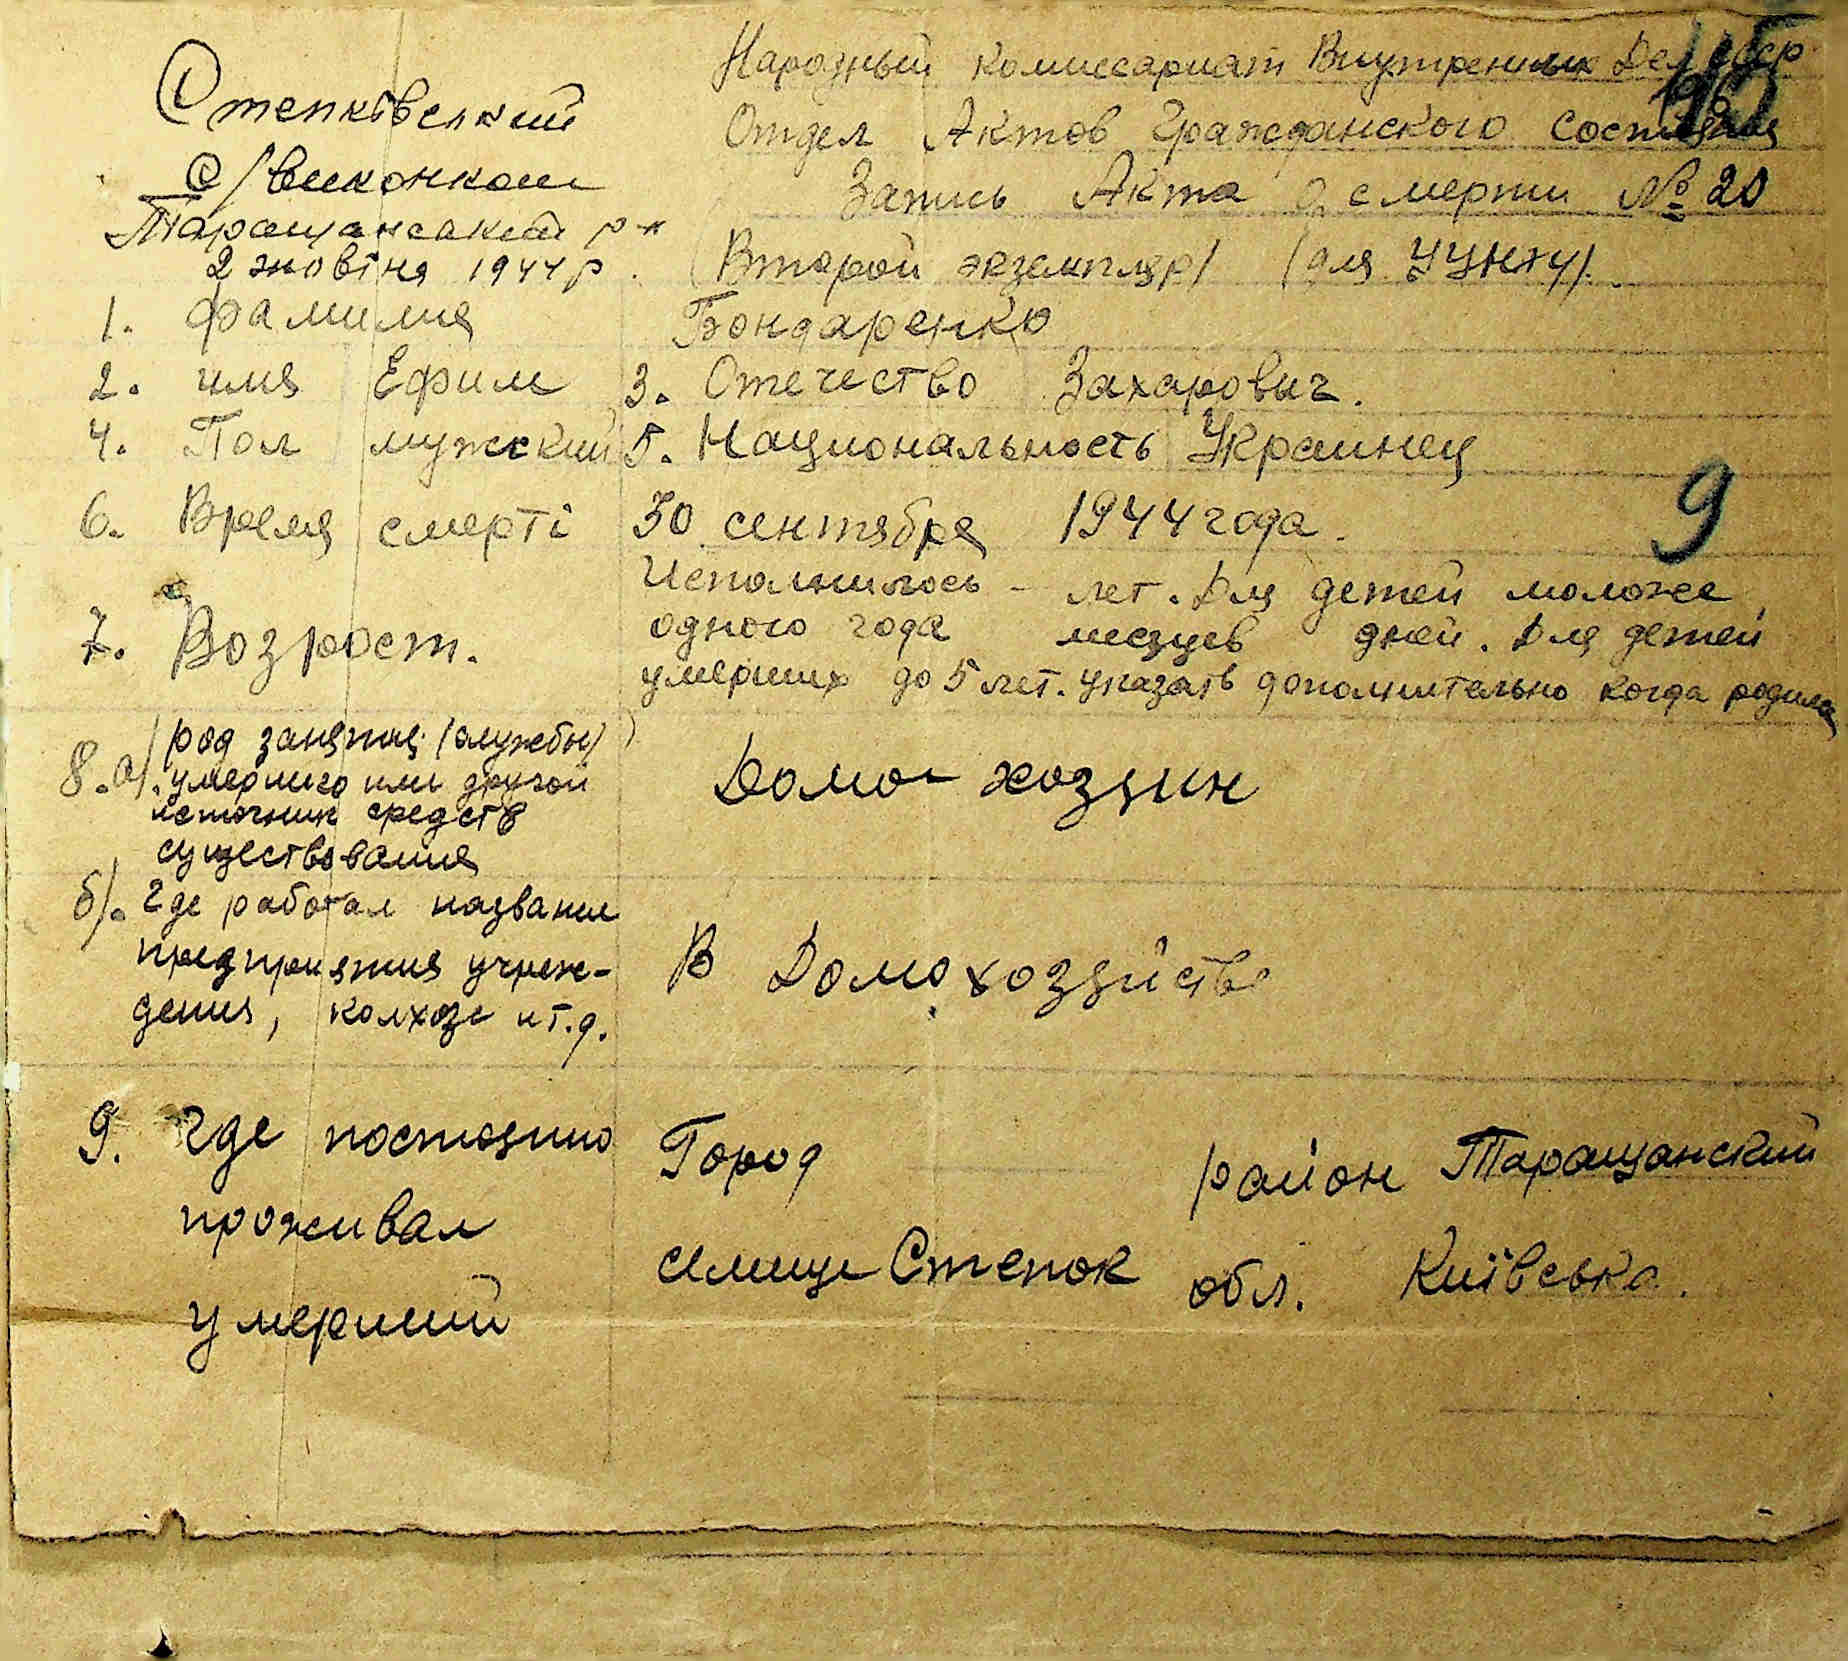 Степківський
с/виконком
Таращанський р-н
2 жовтня 1944 р.
Народный комиссариат Внутренних Дел ссср
Отдел Актов Гражданского состояния
Запись Акта о смерти № 20
(Второй экземпляр) (для УУНХУ).
1. Фамилия Бондаренко
2. имя Ефим 3. Отечество Захарович.
4. Пол мужский 5. Национальность Украинец
6. Время смерті 30 сентября 1944 года.
9
7. Возрост.
Исполнилось - лет. Для детей моложе
одного года месяцев дней. Для детей
умерших до 5 лет. указать дополнительно когда родился
8. а). род занятия (службы)
умершего или другой
источник средств
существования
Домо-хозяин
б). Где работал название
предприятия учреж-
дения, колхоза и т.д.
В Домохозяйстве
9. Где постоянно
проживал
умерший
Город район Таращанский
селище Степок обл. Київська.